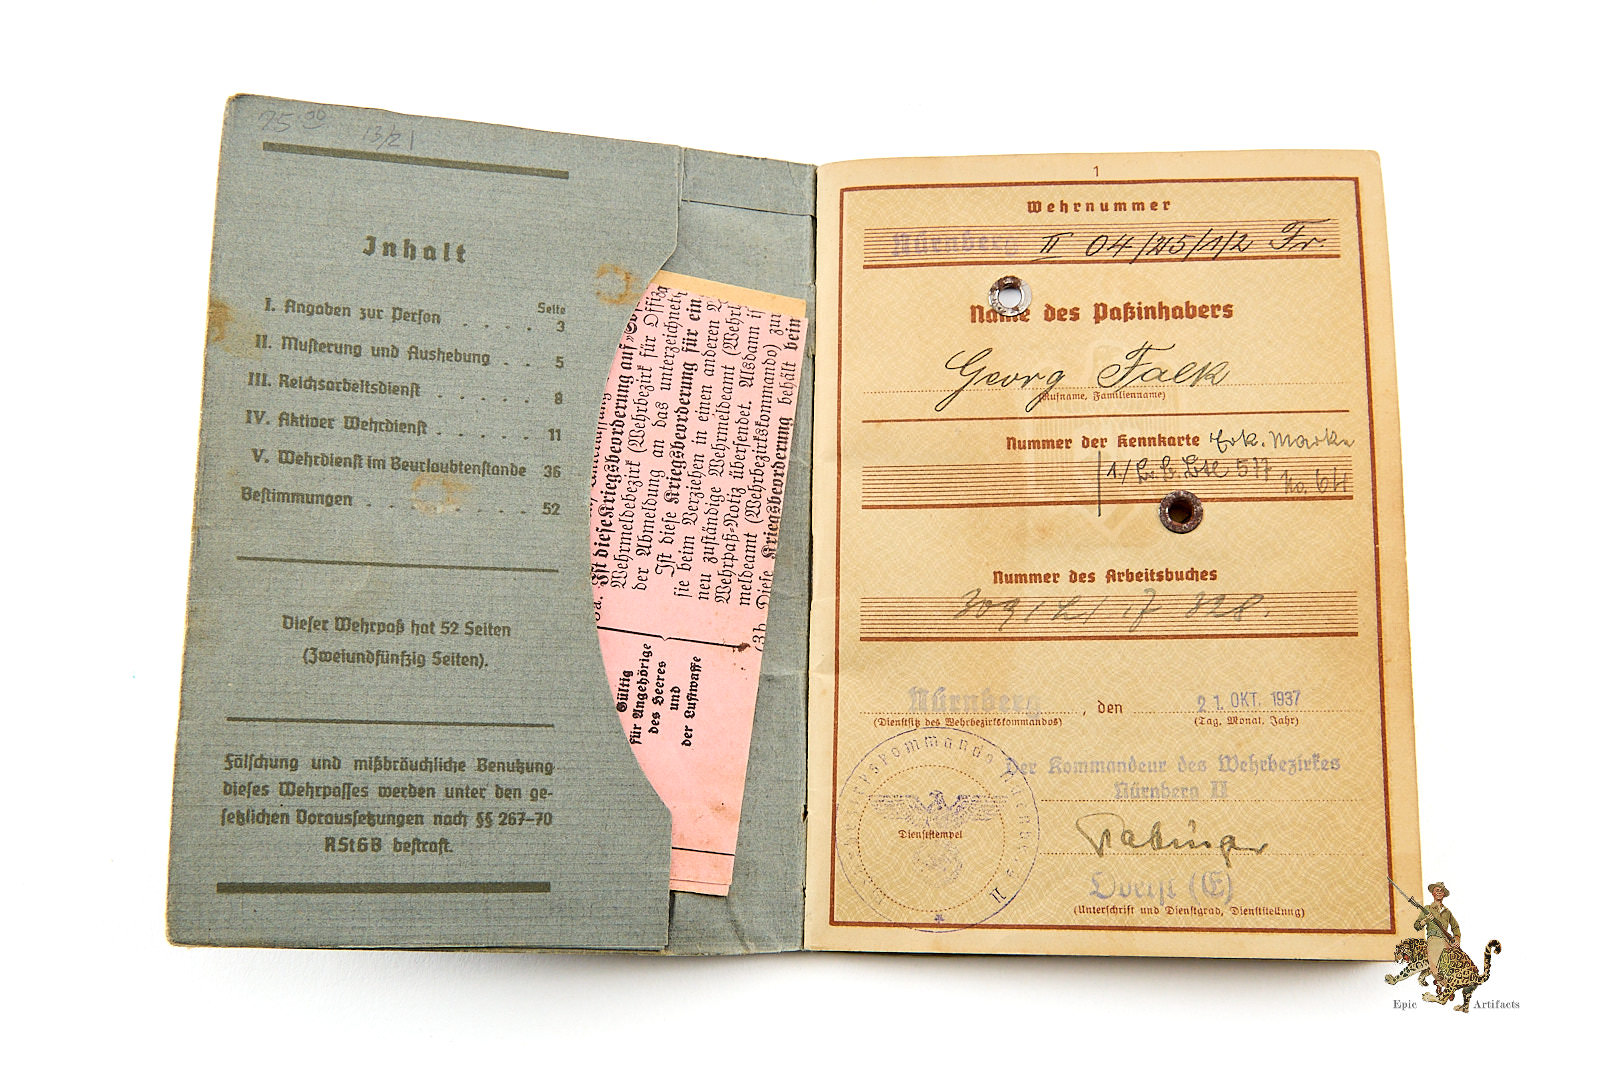 25 00
13/21
Inhalt
Seite
I. Angaben zur Person . . . . 3
II. Musterung und Aushebung . . 5
III. Reichsarbeitsdienst . . . . . 8
IV. Aktiver Wehrdienst . . . . . 11
V. Wehrdienst im Beurlaubtenstande 36
Bestimmungen . . . . . . . 52
Dieser Wehrpaß hat 52 Seiten
(Zweiundfünfzig Seiten).
Fälschung und mißbräuchliche Benutzung
dieses Wehrpasses werden unter den ge-
setzlichen Voraussetzungen nach §§ 267–70
RStGB bestraft.
3a. Ist diese Kriegsbeorderung auf
Wehrmeldebezirk (Wehrbezirk für Offiz
der Abmeldung an das unterzeichnete
Ist diese Kriegsbeorderung für ein
sie beim Verziehen in einen anderen
neu zuständige Wehrmeldeamt (Wehrb
Wehrpaß-Notiz übersendet. Alsdann
meldeamt (Wehrbezirkskommando) zur
(3b. Diese Kriegsbeorderung behält bein
Gültig
für Angehörige
des Heeres
und
der Luftwaffe
1
Wehrnummer
Nürnberg II 04/25/1/2 Fr.
Name des Paßinhabers
Georg Falk
(Rufname, Familienname)
Nummer der Kennkarte Erk. Marke
577 No. 64
Nummer des Arbeitsbuches
Nürnberg, den 21. OKT. 1937
(Dienstsitz des Wehrbezirkskommandos) (Tag, Monat, Jahr)
Der Kommandeur des Wehrbezirkes
Nürnberg II
Dienststempel
Oberst (E)
(Unterschrift und Dienstgrad, Dienststellung)
Epic Artifacts